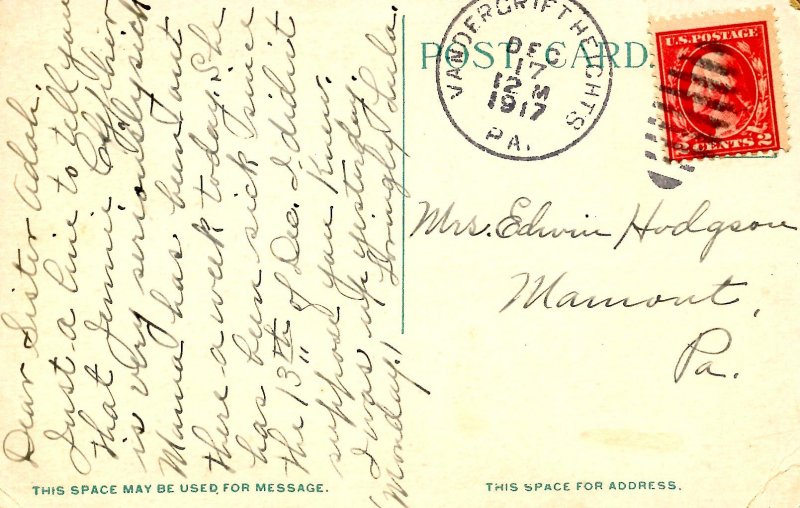 POST CARD.
VANDERGRIFT HEIGHTS
DEC
17
12 M
1917
PA.
U.S. POSTAGE
2 CENTS 2
Dear Sister Adah.
Just a line to tell you
that Jennie
is very seriously sick
Mama has been out
there a week today. She
has been sick since
the 13th of Dec. I didn't
suppose you knew.
I was up yesterday.
Lovingly Lula.
Monday!
Mrs. Edwin Hodgson
Mamont,
Pa.
THIS SPACE MAY BE USED FOR MESSAGE.
THIS SPACE FOR ADDRESS.